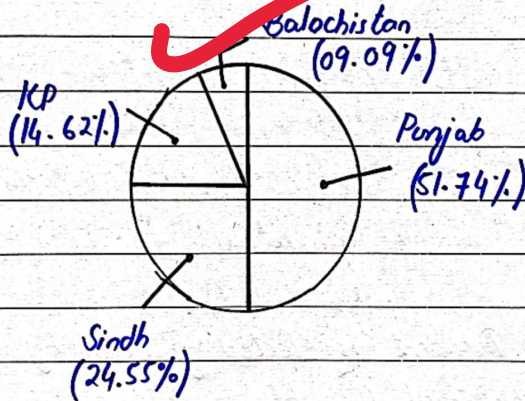 Balochistan
(09.09%)
KP
(14.62%)
Punjab
(51.74%)
Sindh
(24.55%)